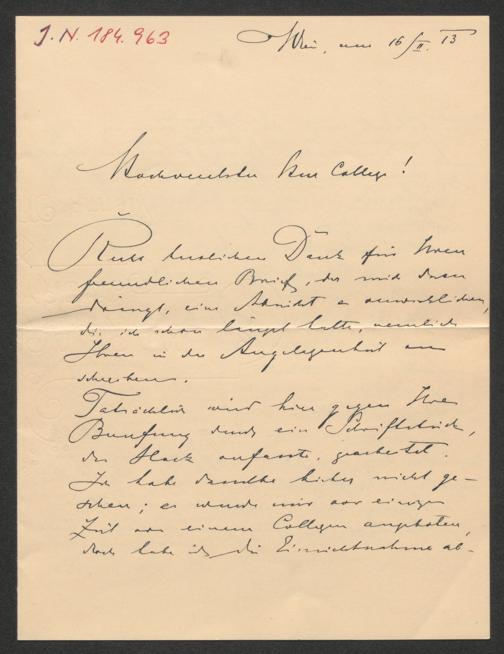 J. N. 184.963
Wien, am 16/II. 13
Hochverehrter Herr College!
Recht herzlichen Dank für Ihren
freundlichen Brief, der mich daran
drängt, eine Absicht zu verwirklichen,
die ich schon längst hatte, nemlich
Ihnen in der Angelegenheit zu
schreiben.
Tatsächlich wird hier gegen Ihre
Berufung durch ein Schriftstück,
das Hock verfasste, gearbeitet.
Ich habe dasselbe bisher nicht ge-
sehen; es wurde mir vor einiger
Zeit von einem Collegen angeboten,
doch habe ich die Einsichtnahme ab-